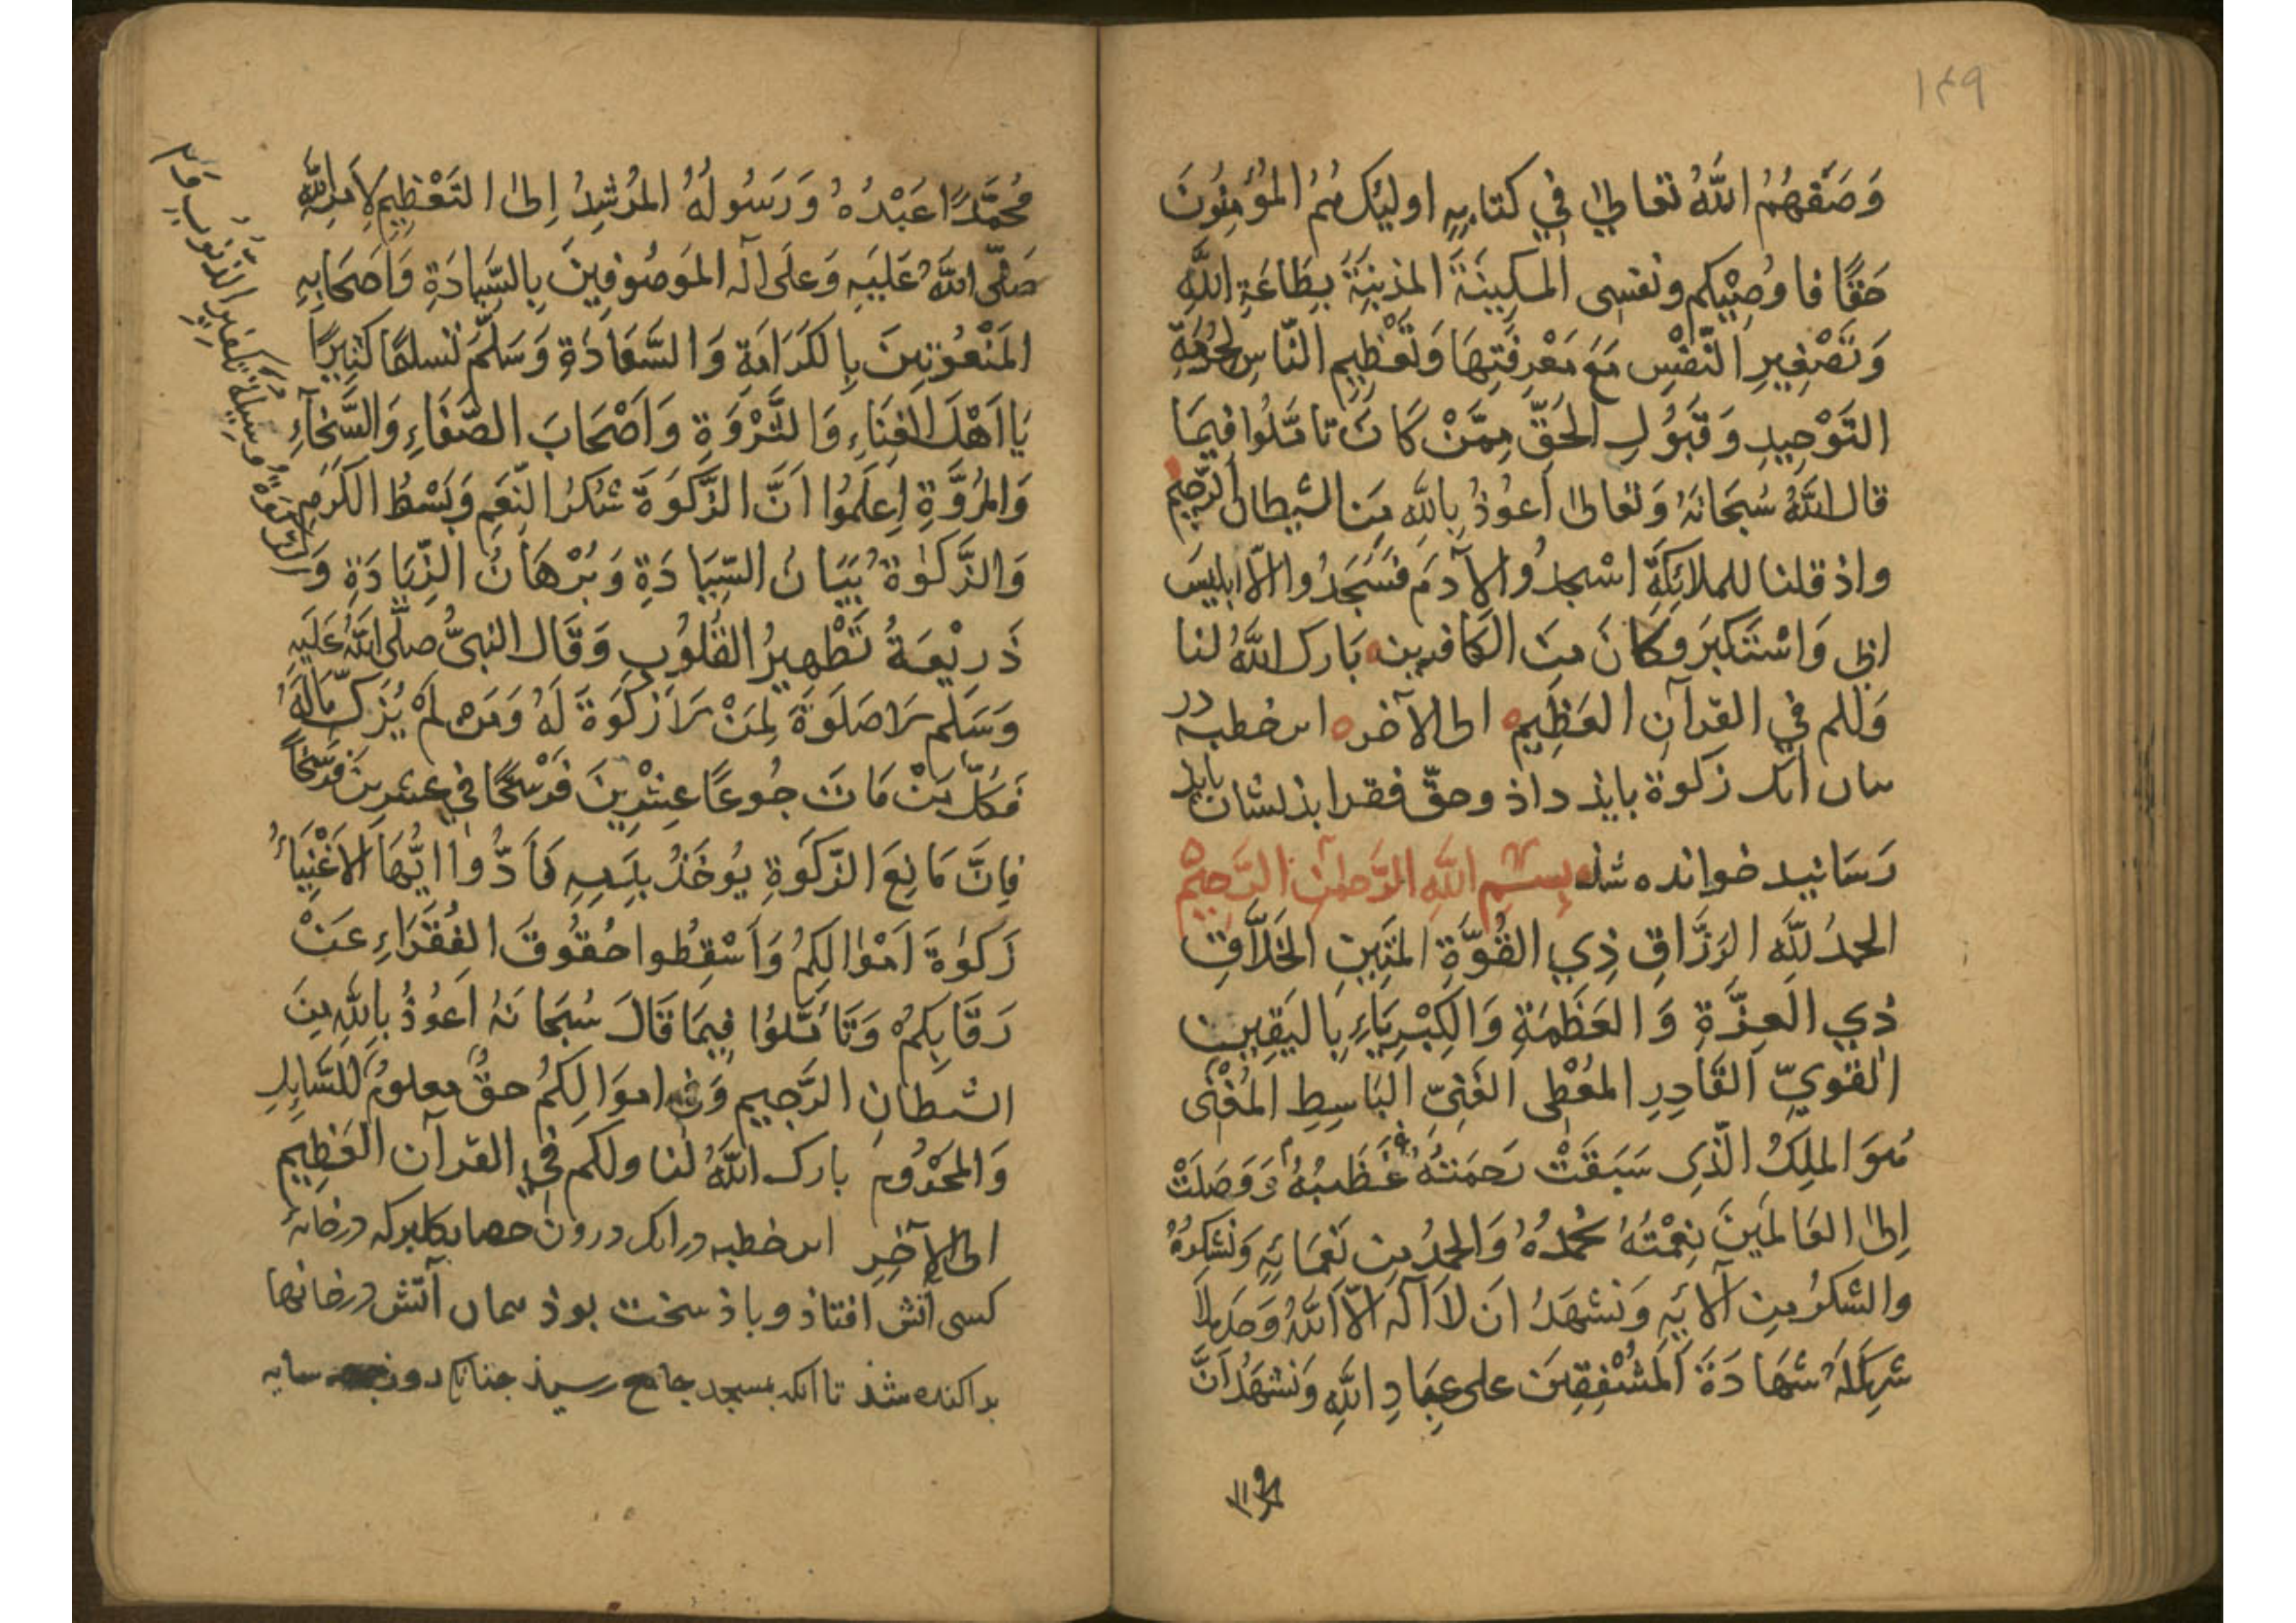 ١٤٩
وَصَفَهُمُ اللَّهُ تعالى في كتابِهِ اوليِك هُمُ المؤمِنُونَ
حَقًّا فاوُصِيْكم ونفسى المسكِينَةَ المذنِبَةَ بِطَاعَةِ اللَّهِ
وَتَصْغِيرِ النَّفْسِ مَعَ مَعْرِفَتِهَا وَتَعْظِيمِ النَّاسِ لِحُرْمَةِ
التَوْحِيدِ وَقَبُولِ الحَقِّ مِمَّنْ كَانَ تامَّلُوا فِيمَا
قال اللَّهُ سُبحَانَهُ وَتعالى اَعوُذُ بِاللَّهِ مِنَ الشيطان الرَّجيم
واذ قلنا للملائِكَةِ اسْجدُوا لآدمَ فَسَجَدُوا الّا ابليسَ
ابى وَاسْتَكبَرَ وكانَ مِنَ الكافرين بَارك اللَّهُ لنا
وَلكم في القرآن العَظِيم الى الآخر اين خطبه در
بيان آنك زكوة بايذ داذ وحقّ فقرا بذيشان بايد
رَسَانيد خوانده شد بِسْمِ اللَّهِ الرَّحمنِ الرَّحِيمِ
الحمدُ للَّهِ الرَزَّاقِ ذِي القُوَّةِ المتِينِ الخَلَّاقِ
ذِي العِزَّةِ وَالعَظَمَةِ وَالكِبْرِيَاءِ بِاليَقِينِ
القَوِيِّ القَادِرِ المعُطى الغَنِيِّ البَاسِطِ المُغْنى
هُوَ الملِكُ الَّذِى سَبَقَتْ رَحمَتُهُ غَضَبُهُ وَوَصَلَتْ
اِلىٰ العَالَمينَ نِعْمَتُهُ نحمدُهُ وَالحمدُ مِن نَعمَائِهِ وَنَشكرُهُ
والشكرُ مِن آلائِهِ وَنشهَدُ ان لا اله الّا اللَّهُ وَحدَه لا
شرِيكَ لَهُ شَهَادَةَ المُشْفِقِينَ على عِبَادِ اللَّهِ وَنشهَدُ انَّ
مُحمَّدًا عَبْدُهُ وَرَسُولُهُ المرُشِدُ اِلىٰ التَعْظِيمِ لِاَمرِ اللَّهِ
صَلَّى اللَّهُ عَلَيَهِ وَعلى آله الموَصُوفِينَ بِالسِّيَادَةِ وَاَصحَابِهِ
المَنْعُوتِينَ بِالكَرَامَةِ وَالسَّعَادَةِ وَسَلَّمَ تسليمًا كثِيرًا
يَا اَهْلَ الغِنَاءِ وَالثَّرْوَةِ وَاَصْحَابَ الصَّفَاءِ وَالسَّخَآءِ
وَالمرُوَّةِ اِعلَمُوا اَنَّ الزَّكوَةَ شُكرُ النِّعَمِ وَبَسْطُ الكَرَمِ
وَالزَّكوٰةُ بَيَانُ السِّيَادَةِ وَبُرْهَانُ الزِّيَادَةِ وَ
ذَرِيْعَةُ تَطْهِيرُ القُلوُبِ وَقَال النبىُّ صلَّى اللَّهُ عَلَيَهِ
وَسَلم لَا صَلَوةَ لِمَنْ لَا زَكوَةَ لَهُ وَمَن لَمْ يُزَكِّ مَالَهُ
فَكلُّ مَنْ مَاتَ جُوعًا عِشْرِينَ فَرْسَخًا في عشرِينَ فَرسَخًا
فَاِنَّ مَانِعَ الزّكوَةِ يُوخَذُ بِهِ فَاَدُّوا ايُّهَا الاَغْنِيَاءُ
زَكوٰةَ اَمْوٰالِكُمْ وَاَسْقِطُوا حُقُوقَ الفُقَرَاءِ عَنْ
رَقَابِكُمْ وَتَامَّلوُا فِيمَا قَالَ سُبحَانَهُ اَعوُذُ بِاللَّهِ مِنَ
الشيطَانِ الرَّجِيمِ وَفى اموَالِكُمْ حقٌّ معلومٌ للسَّايِلِ
وَالمحَرْومِ بارك اللَّهُ لنا ولكم في القرآن العَظِيمِ
الى الآخِرِ اين خطبه در آنك درون حصار كلبركه در خانهٔ
كسى آتش افتاذ وباذ سخت بوذ آتش در خانها
براكنده شذ تا آنكه بمسجد جامع رسيذ سايه
وَالزَّكوٰةُ وسيلَةُ تكفِيرِ الذنُوبِ وَ